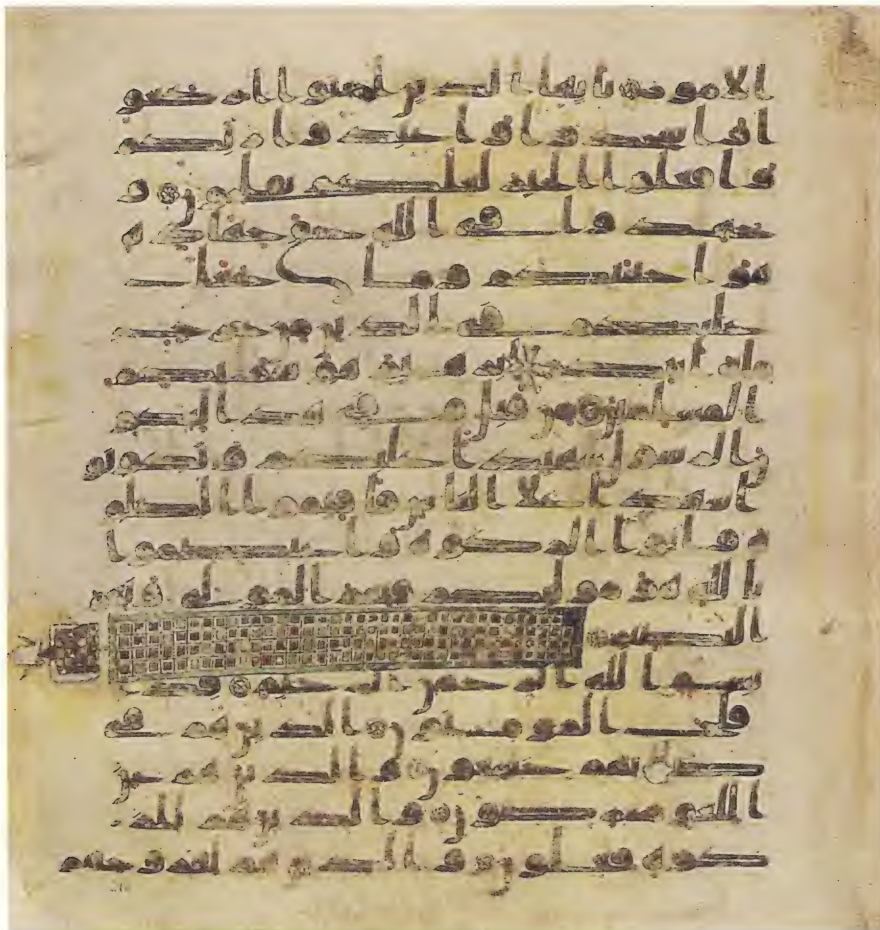 الامور يايها الذين امنوا اركعو
ا واسجدوا واعبدوا ربكم
وافعلوا الخير لعلكم تفلحون و
جهدوا في الله حق جهاده
هو اجتبيكم وما جعل
عليكم في الدين من حرج
ملة ابيكم ابرهيم هو سميكم
المسلمين من قبل وفي هذا ليكو
ن الرسول شهيدا عليكم وتكونو
ا شهدا على الناس فاقيموا الصلو
ة واتوا الزكوة واعتصموا
بالله هو موليكم فنعم المولى ونعم
النصير
بسم الله الرحمن الرحيم قد ا
فلح المومنون الذين هم في
صلاتهم خشعون والذين هم عن
اللغو معرضون والذين هم للز
كوة فعلون والذين هم لفروجهم